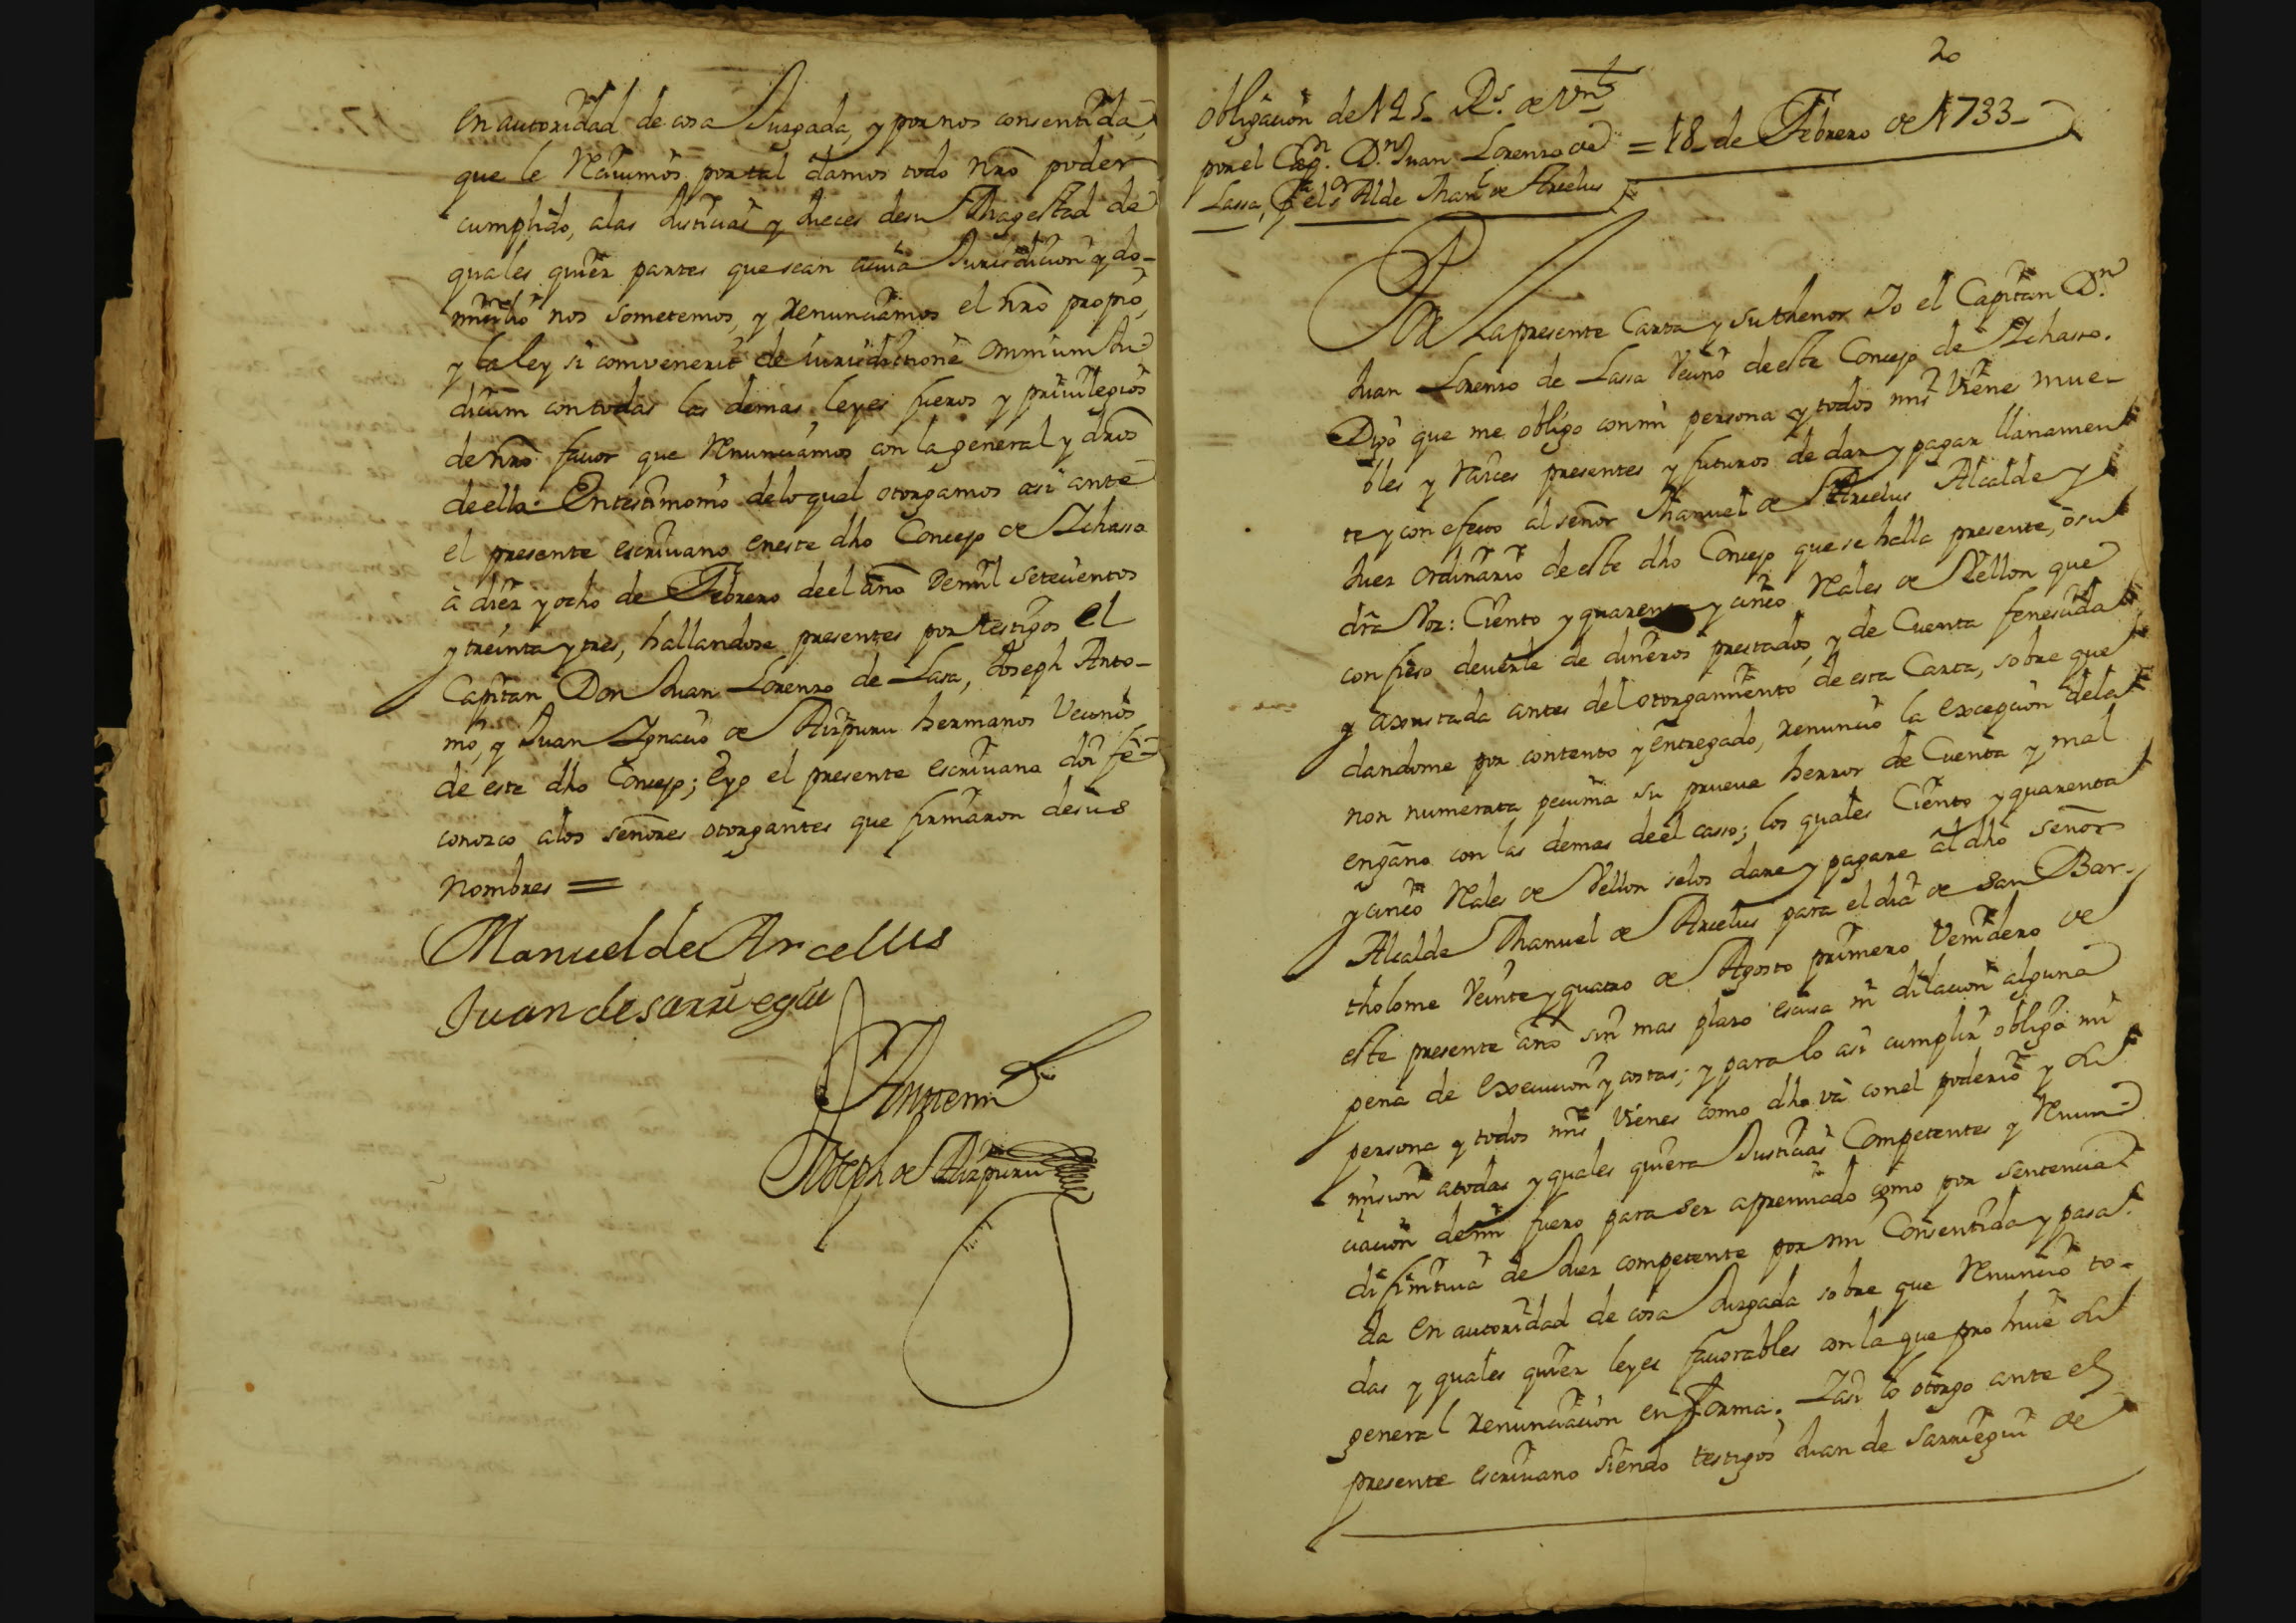 en autoridad de cosa Juzgada, y por nos consentida,
que le Reciuimos por tal damos todo nro poder
cumplido, alas Justicias y Jueces de su Magestad de
quales quier partes que sean acuia Jurisdicion y do-
minio nos sometemos, y renunciamos el nro propio,
y la ley si combenerit de iurisdictione omnium Ju
dicum con todas las demas leyes fueros y priuilegios
de nro fauor que Renunciamos con la general y dros
de ella: En testimonio de lo qual otorgamos asi ante
el presente escriuano en este dho Concejo de Ichasso
à diez y ocho de Febrero de el año de mil setecientos
y treinta y tres, hallandose presentes por testigos el
Capitan Don Juan Lorenzo de Lasa, Joseph Anto-
nio, y Juan Ignacio de Aizpuru hermanos Vecinos
de este dho Concejo; E yo el presente escriuano doi fè
conozco alos señores otorgantes que firmaron de sus
nombres =
Manuel de Arcellus
Juan de sarriegui
Ante mi
Joseph de Aizpuru
20
Obligacion de 145 Rs. de Vn
por el Capn. Dn. Juan Lorenzo de
Lassa, Pa. el sr Alde Manl. de Arcelus
= 18 de Febrero de 1733-
Por La presente Carta y su thenor Io el Capitan Dn.
Juan Lorenzo de Lassa Vecino de este Concejo de Ichasso.
Digo que me obligo con mi persona y todos mis Viene mue-
bles y raices presentes y futuros de dar y pagar llanamen
te y con efecto al señor Manuel de Arcelus Alcalde y
Juez ordinario de este dho Concejo que se halla presente, ò su
dra Voz: Ciento y quarenta y cinco Reales de Vellon que
confieso deuerle de dineros prestados, y de Cuenta fenescida
y axustada antes del otorgamiento de esta Carta, sobre que
dandome por contento y entregado, renuncio la excepcion de la
non numerata pecunia su prueua herror de Cuenta y mal
engaño con las demas de el casso; los quales Ciento y quarenta
y cinco Reales de Vellon se los dare y pagare al dho señor
Alcalde Manuel de Arcelus para el dia de san Bar-
tholome Veinte y quatro de Agosto primero Venidero de
este presente año sin mas plazo escusa ni dilacion alguna
pena de execucion y costas; y para lo asi cumplir obligo mi
persona y todos mis Vienes como dho và con el poderio y su
mision atodas y quales quiera Justicias Competentes y Renun
ciacion de mi fuero para ser apremiado como por sentencia
difinitiua de Juez competente por mi Consentida y pasa-
da en autoridad de cosa Juzgada sobre que Renuncio to-
das y quales quier leyes fauorables con la que prohiue la
general renunciacion en forma. Iasi lo otorgo ante el
presente escriuano siendo testigos Juan de Sarriegui de